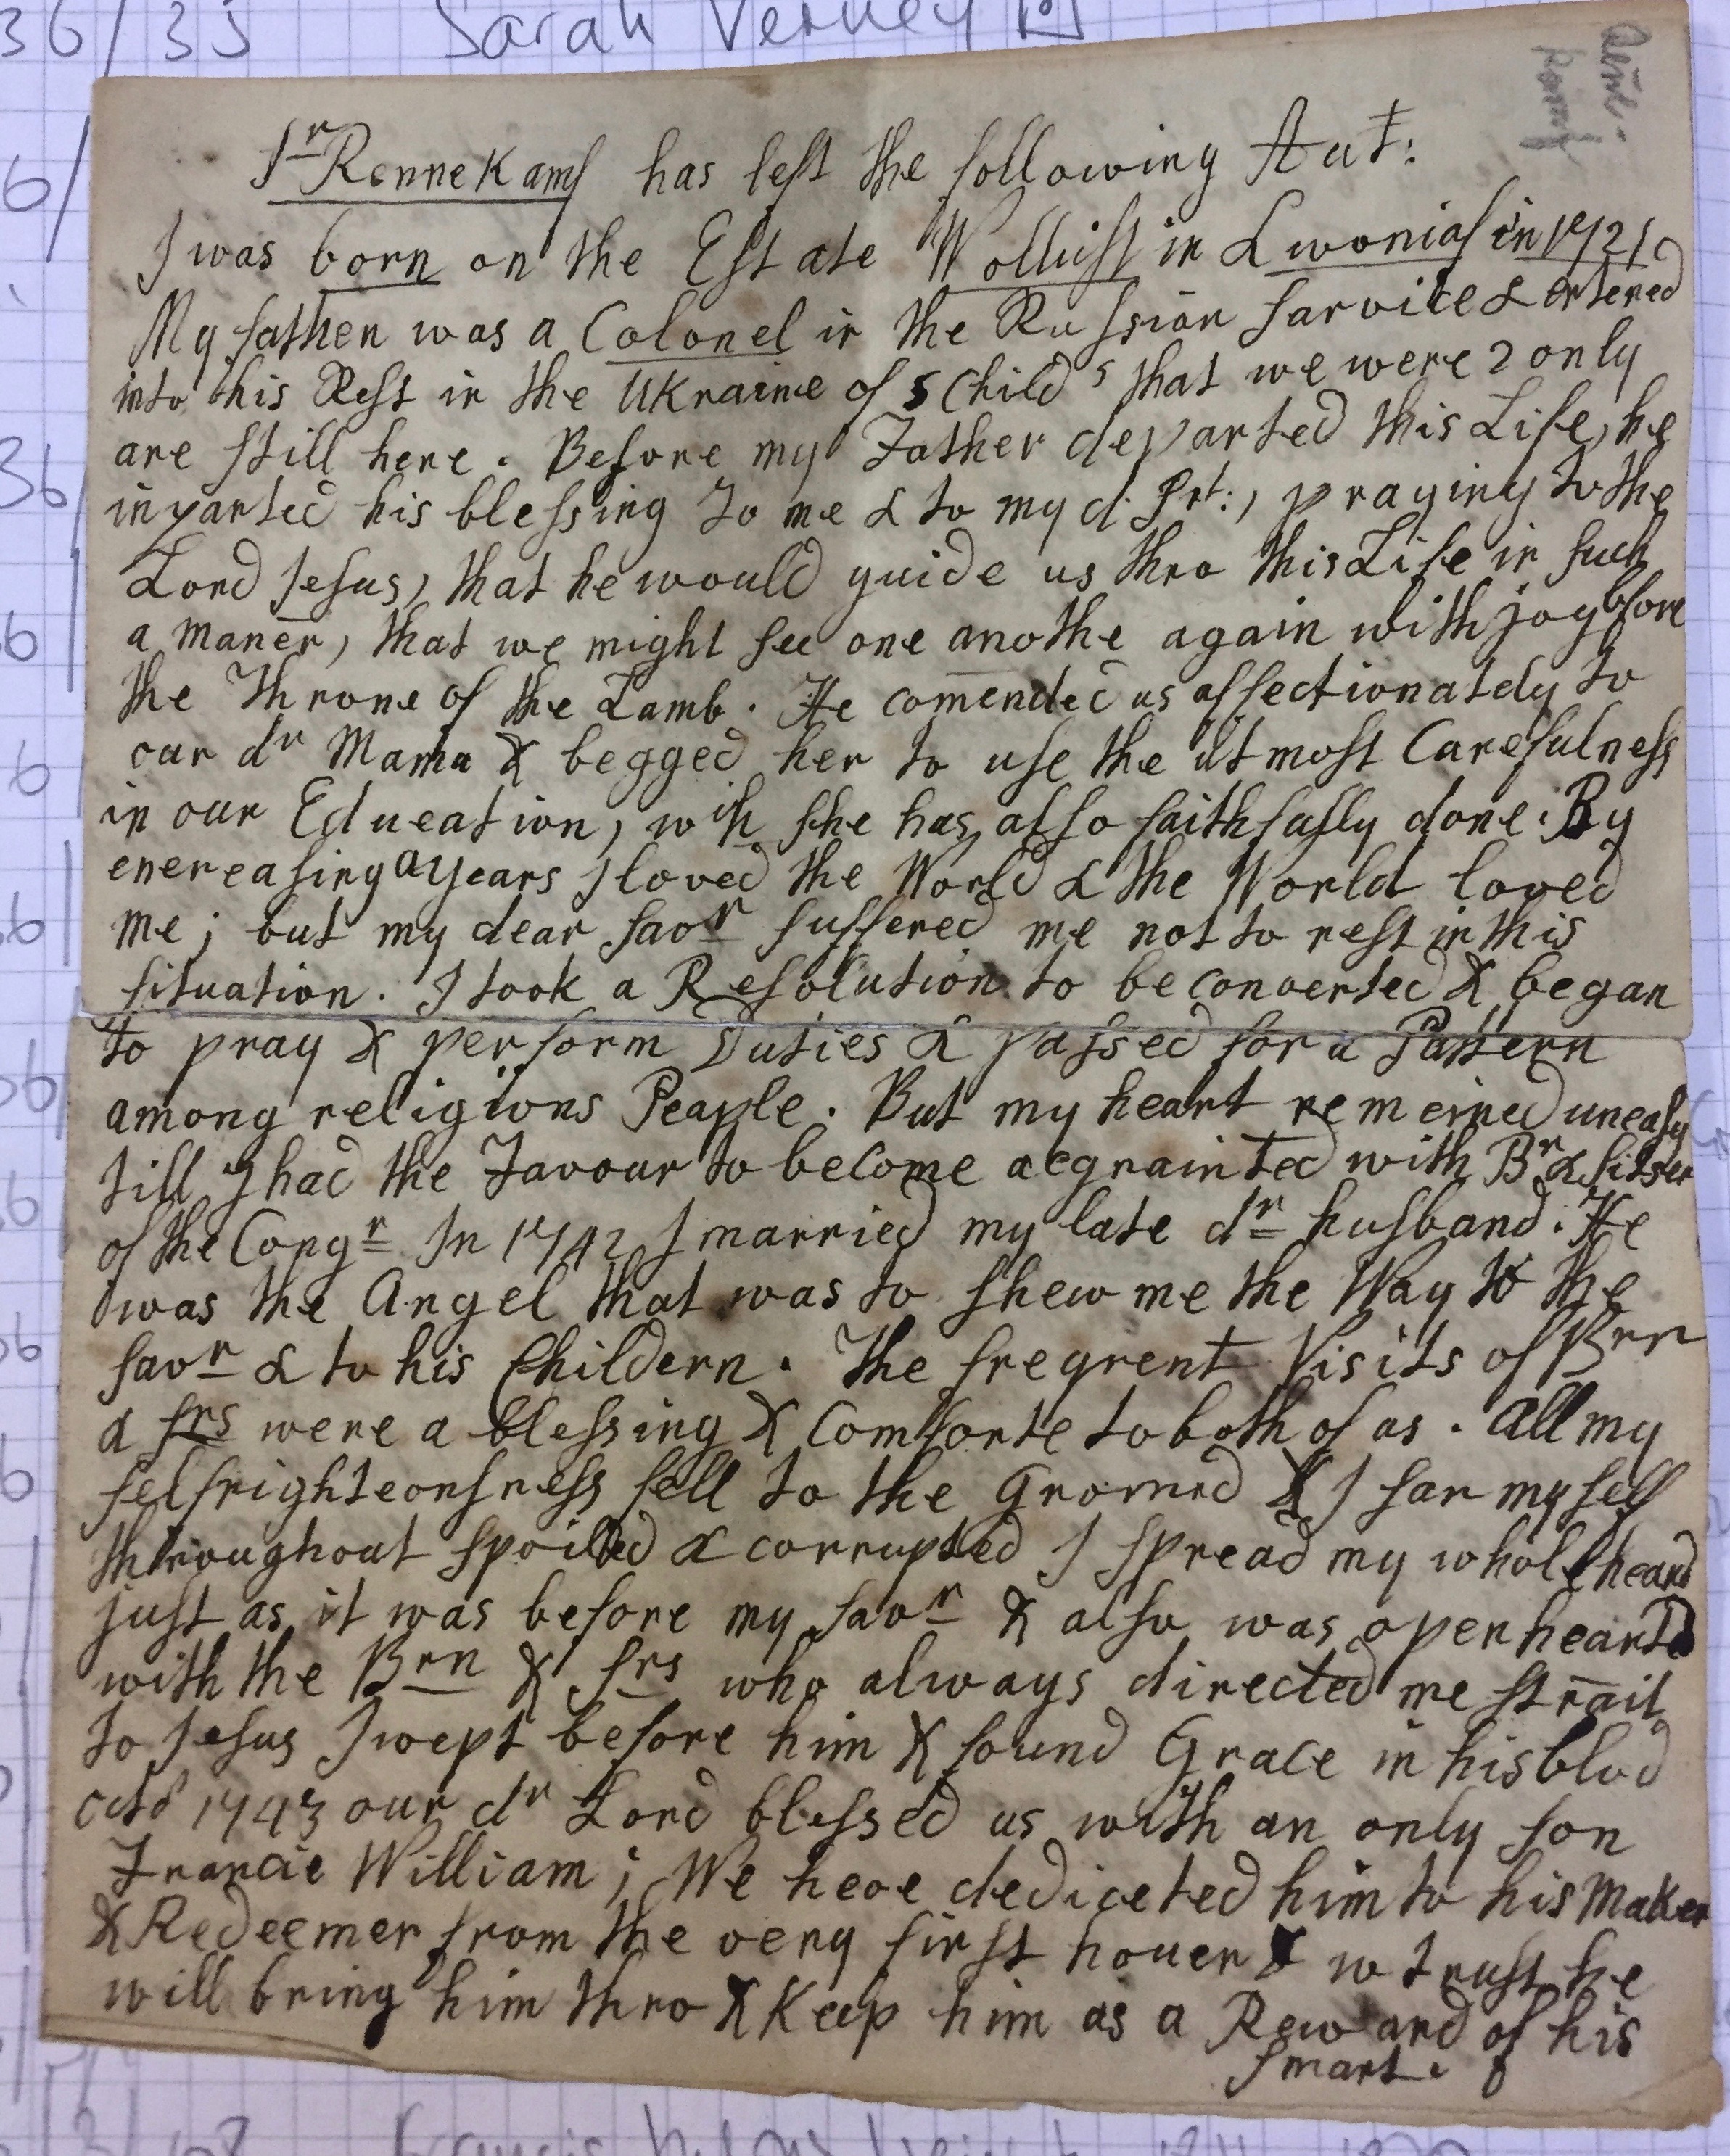 36/35 Sarah Verney
Sr Rennekamf has left the following Aut:
I was born on the Estate Wollust in Liwonias in 1721
My father was a Colonel in the Russian Sarvice & entered
into his Rest in the Ukraine of 5 Childs that we were 2 only
are still here. Before my Father departed this Life, he
inparted his blessing to me & to my d. Srt:, praying to the
Lord Jesus, that he would guide us thro this Life in such
a maner, that we might see one anothe again with joy bfore
the Throne of the Lamb. He comended us affectionately to
our dr Mama & begged her to use the utmost Carefulness
in our Education, wch she has also faithfully done. By
enereasing years I loved the World & the World loved
me; but my dear savr suffered me not to rest in this
situation. I took a Resolution to be converted & began
to pray & perform Duties & passed for a Pattern
among religions Peaple. But my heart remeined uneasy
till I had the Favour to become aegnainted with Br & sister
of the Congr In 1742 I married my late dr husband. He
was the Angel that was to shew me the Way to the
savr & to his Childern. The freqnent Visits of Brn
& srs were a blessing & Comforte to both of as. All my
selfrighteonsness fell to the Gronnd & I san myself
throughout spoiled & corrupted I spread my whole heard
just as it was before my savr & also was openhearted
with the Brn & srs who always directed me strait
to Jesus I wept before him & found Grace in his blod
1743 our dr Lord blessed us with an only son
Francie William; We heve dediceted him to his Maker
& Redeemer from the very first houer & w trust he
will bring him thro & Keep him as a Reward of his
smart.